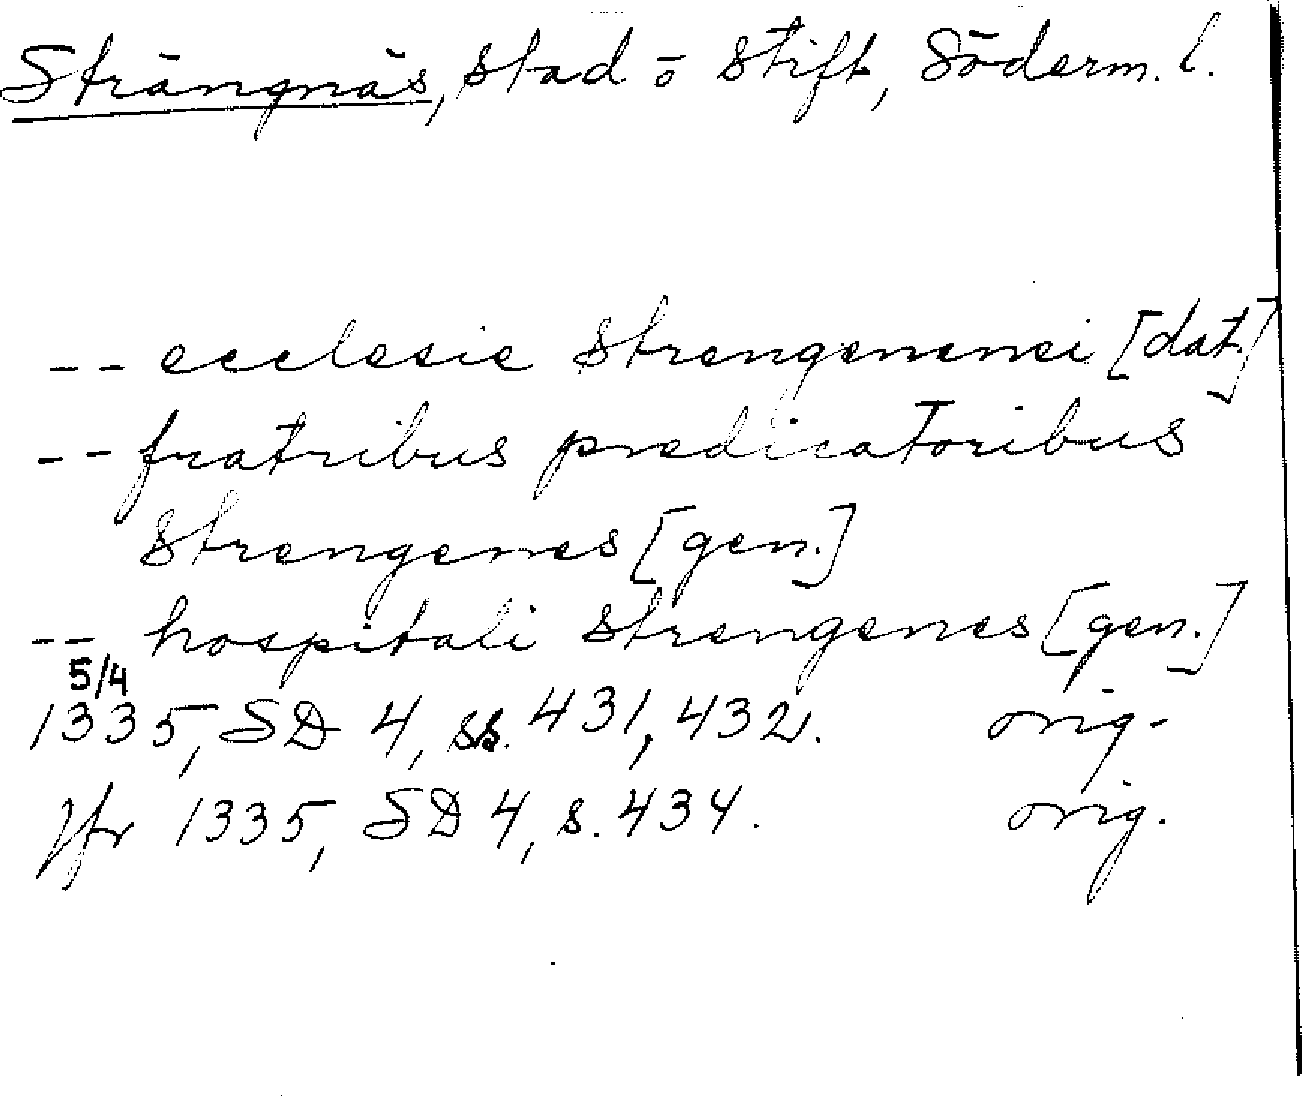 Strängnäs, stad o stift, Söderm. l.
-- ecclesie Strengenensi [dat.]
-- fratribus predicatoribus
Strengenes [gen.]
-- hospitali Strengenes [gen.]
5/4
1335, SD 4, ss. 431, 432. orig.
Jfr 1335, SD 4, s. 434. orig.